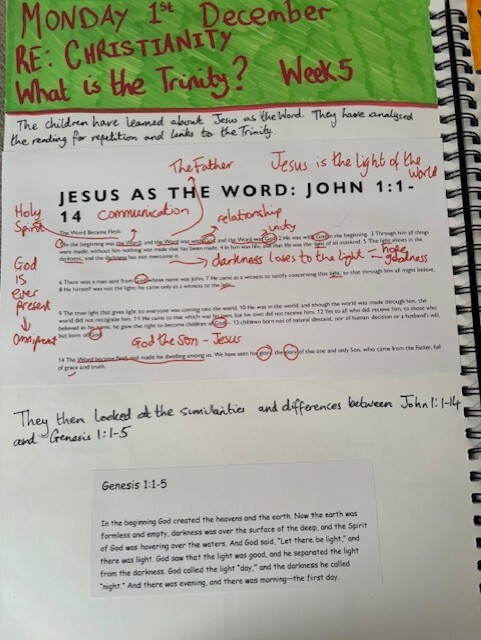 MONDAY 1st December
RE: CHRISTIANITY
What is the Trinity? Week 5
The children have learned about Jesus as the Word. They have analysed
the reading for repetition and links to the Trinity.
The Father
Jesus is the light of the
world
JESUS AS THE WORD: JOHN 1:1-
14 communication
Holy
Spirit
relationship
unity
The Word Became Flesh
In the beginning was the Word, and the Word was with God, and the Word was God. 2 He was with God in the beginning. 3 Through him all things
were made; without him nothing was made that has been made. 4 In him was life, and that life was the light of all mankind. 5 The light shines in the
darkness, and the darkness has not overcome it.
darkness loses to the light - hope
goodness
God
is
ever
present
Omnipresent
6 There was a man sent from God whose name was John. 7 He came as a witness to testify concerning that light, so that through him all might believe.
8 He himself was not the light; he came only as a witness to the light.
9 The true light that gives light to everyone was coming into the world. 10 He was in the world, and though the world was made through him, the
world did not recognize him. 11 He came to that which was his own, but his own did not receive him. 12 Yet to all who did receive him, to those who
believed in his name, he gave the right to become children of God— 13 children born not of natural descent, nor of human decision or a husband's will,
but born of God.
God the Son - Jesus
14 The Word became flesh and made his dwelling among us. We have seen his glory, the glory of the one and only Son, who came from the Father, full
of grace and truth.
They then looked at the similarities and differences between John 1:1-14
and Genesis 1:1-5
Genesis 1:1-5
In the beginning God created the heavens and the earth. Now the earth was
formless and empty, darkness was over the surface of the deep, and the Spirit
of God was hovering over the waters. And God said, "Let there be light," and
there was light. God saw that the light was good, and he separated the light
from the darkness. God called the light "day," and the darkness he called
"night." And there was evening, and there was morning—the first day.